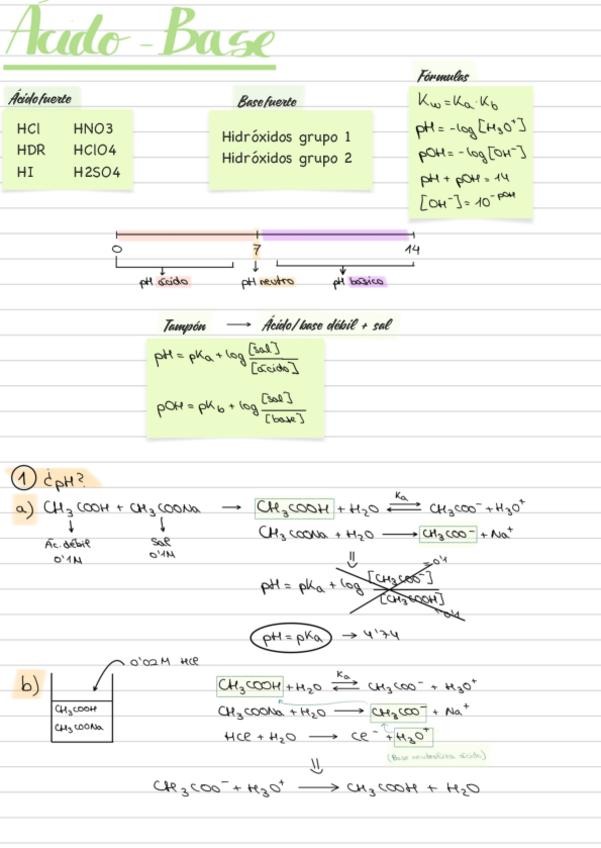 Ácido-Base
Ácido fuerte
HCl HNO3
HDR HClO4
HI H2SO4
Base fuerte
Hidróxidos grupo 1
Hidróxidos grupo 2
Fórmulas
Kw=Ka·Kb
pH=-log[H3O+]
pOH=-log[OH-]
pH+pOH=14
[OH-]=10^-pOH
0 7 14
pH ácido pH neutro pH básico
Tampón → Ácido/base débil + sal
pH=pKa+log [sal]/[ácido]
pOH=pKb+log [sal]/[base]
① ¿pH?
a) CH3COOH + CH3COONa → CH3COOH + H2O ⇌ CH3COO- + H3O+
Ka
Ác. débil Sal
0'1M 0'1M
CH3COONa + H2O → CH3COO- + Na+
⇓
pH = pKa + log [CH3COO-]/[CH3COOH]
=0'1
0'1
pH=pKa → 4'74
b) 0'02M HCl
CH3COOH
CH3COONa
CH3COOH + H2O ⇌ CH3COO- + H3O+
Ka
CH3COONa + H2O → CH3COO- + Na+
HCl + H2O → Cl- + H3O+
(Base neutraliza ácido)
⇓
CH3COO- + H3O+ → CH3COOH + H2O